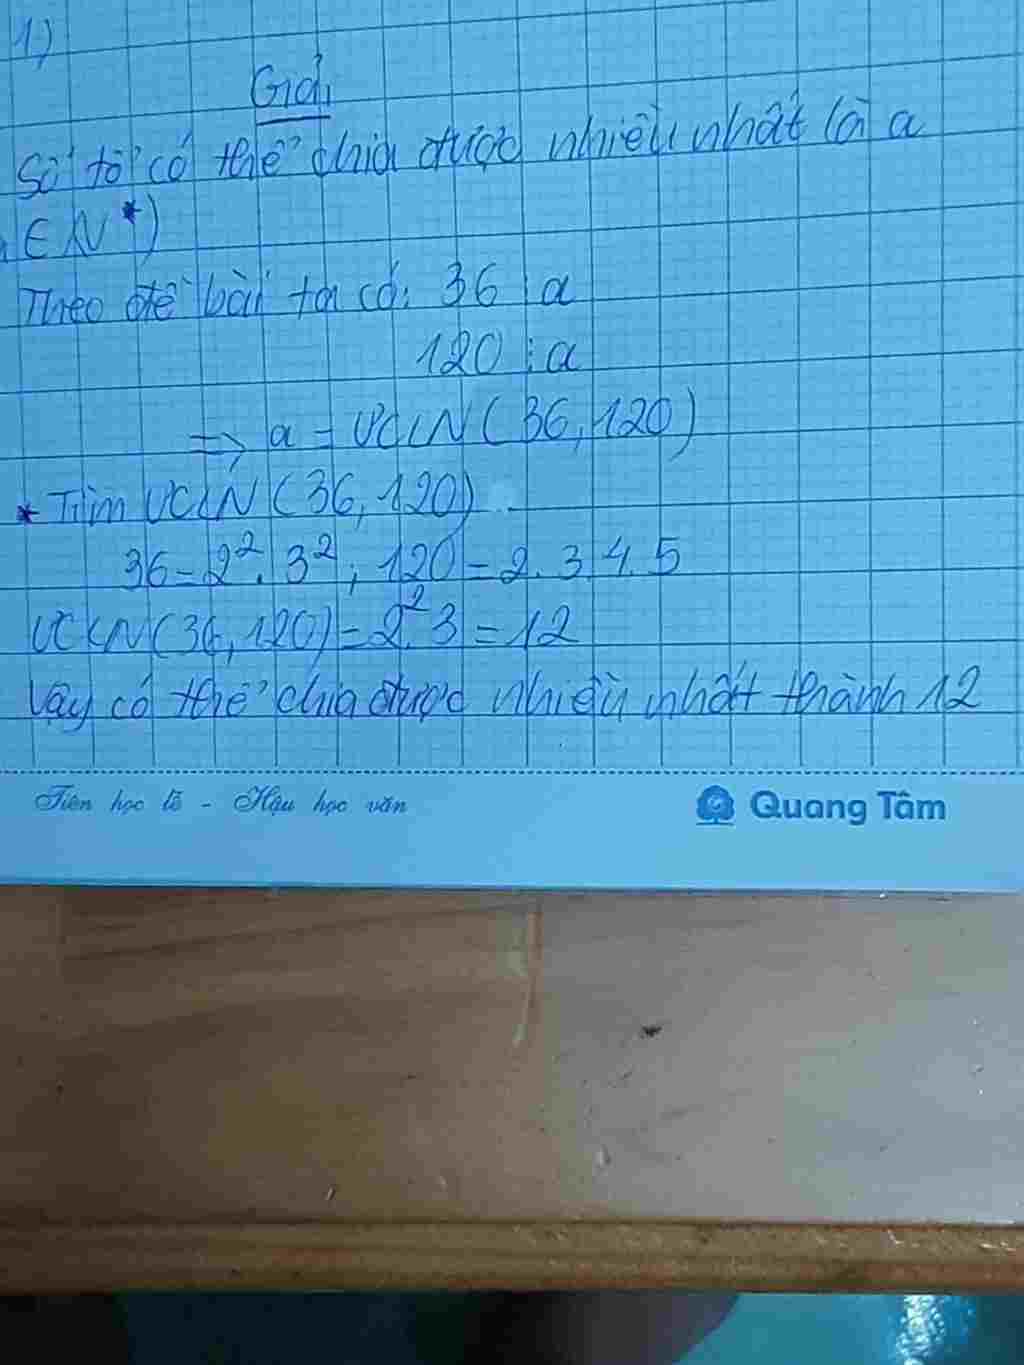 1)
Giải
Số tổ có thể chia được nhiều nhất là a
∈ N*)
Theo đề bài ta có: 36 ⋮ a
120 ⋮ a
=> a = ƯCLN(36,120)
* Tìm ƯCLN (36,120)
36 = 2². 3² ; 120 = 2. 3. 4. 5
ƯCLN(36,120) = 2². 3 = 12
Vậy có thể chia được nhiều nhất thành 12
Tiên học lễ - Hậu học văn
Quang Tâm